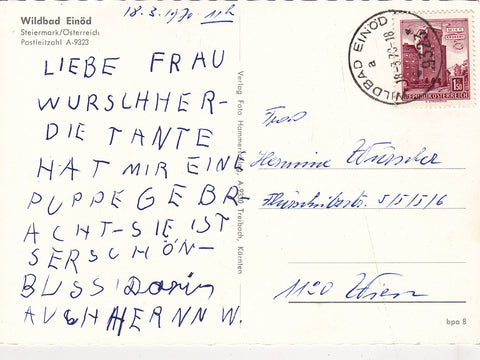 18.3.1970 11h
Wildbad Einöd
Steiermark/Österreich
Postleitzahl A-9323
LIEBE FRAU
WURSCHHER-
DIE TANTE
HAT MIR EINE
PUPPE GEBR
ACHT-SIE IST
SERSCHÖN-
BUSSI Doris
AUCH HERNN W.
Verlag Foto Hammerschlag, A-9330 Treibach, Kärnten
WILDBAD EINÖD
a
18-3.70-18
9323
REPUBLIK ÖSTERREICH
1.50
Frau
Hermine Wurscher
5/5/5/6
1120 Wien
bpa 8